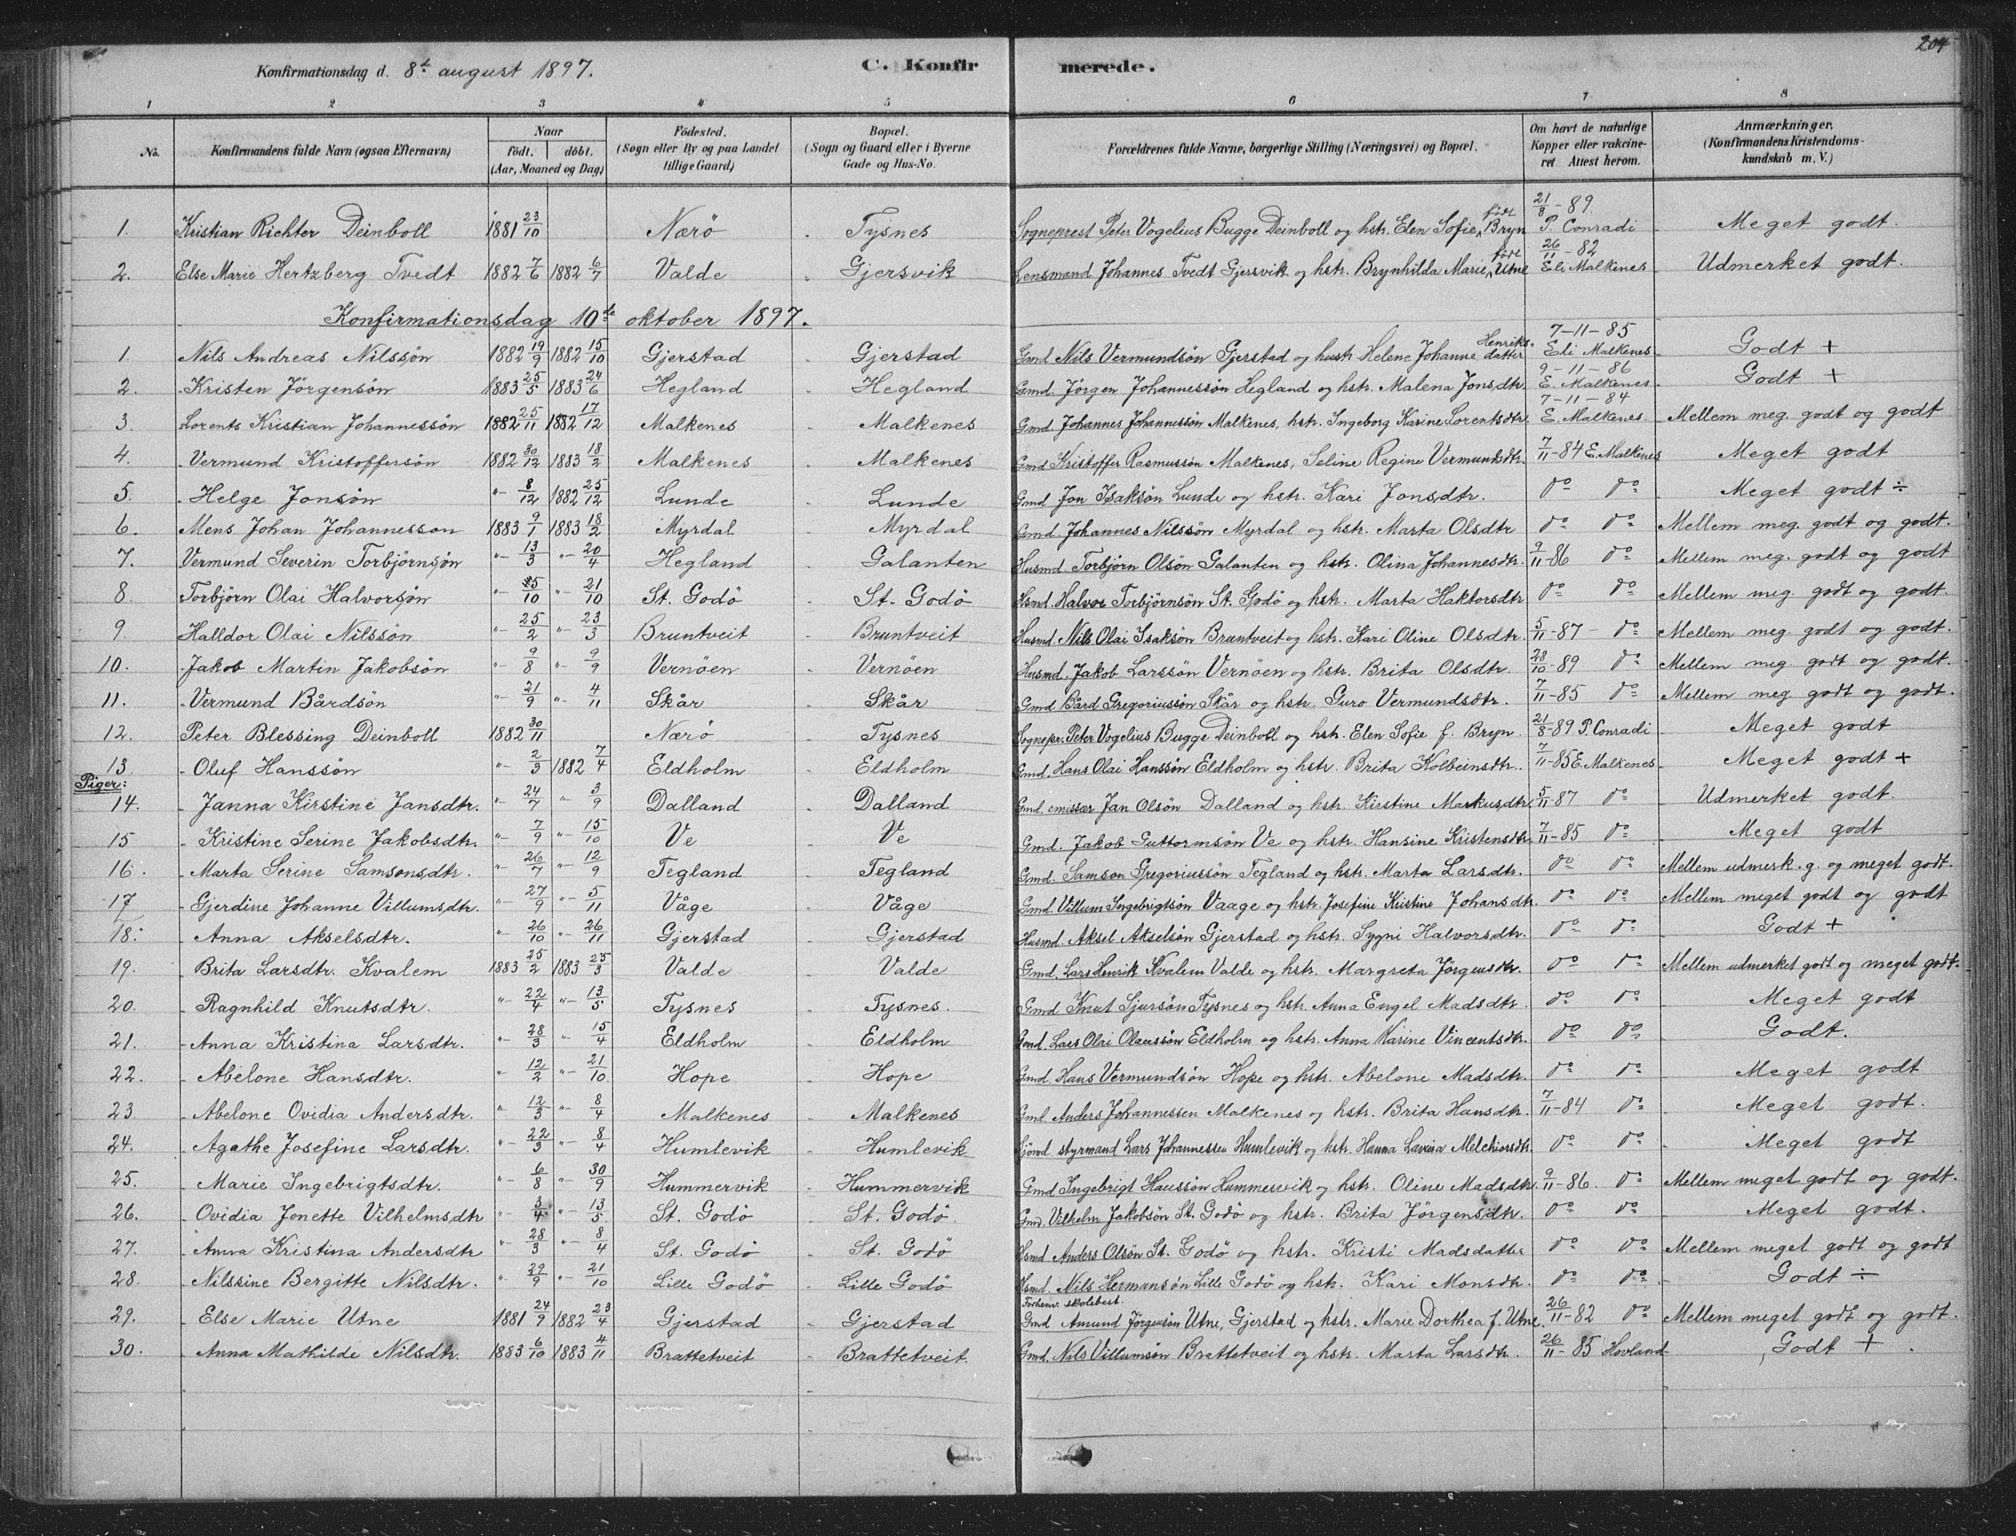 204
Konfirmationsdag d. 8de august 1897. C. Konfirmerede.
1 2 3 4 5 6 7 8
No. Konfirmandens fulde Navn (ogsaa Efternavn) Naar født. døbt. (Aar, Maaned og Dag) Fødested. (Sogn eller By og paa Landet tillige Gaard) Bopæl. (Sogn og Gaard eller i Byerne Gade og Hus-No. Forældrenes fulde Navne, borgerlige Stilling (Næringsvei) og Bopæl. Om havt de naturlige Kopper eller vakcineret Attest herom. Anmærkninger. (Konfirmandens Kristendomskundskab m. V.)
1. Kristian Richter Deinboll 1881 23/10 Nærö Tysnes Sogneprest Peter Vogelius Bugge Deinboll og hstr. Elen Sofie, født Bryn 21/8-89 P. Conradi Meget godt.
2. Else Marie Hertzberg Tvedt 1882 7/6 1882 6/7 Valde Gjersvik Lensmand Johannes Tvedt Gjersvik og hstr. Brynhilda Marie, født Utne 26/11-82 Eli Malkenes Udmerket godt.
Konfirmationsdag 10de oktober 1897.
1. Nils Andreas Nilssön 1882 19/9 1882 15/10 Gjerstad Gjerstad Gmd. Nils Vermundsön Gjerstad og hustr. Helene Johanne Henriksdatter 7-11-85 Eli Malkenes Godt +
2. Kristen Jörgensön 1883 25/5 1883 24/6 Hegland Hegland Gmd. Jörgen Johannessön Hegland og hstr. Malena Jonsdtr 9-11-86 E. Malkenes Godt +
3. Lorents Kristian Johannessön 1882 25/11 1882 17/12 Malkenes Malkenes Gmd. Johannes Johannessön Malkenes, hstr. Ingeborg Karine Lorentsdtr 7-11-84 E. Malkenes Mellem meg. godt og godt
4. Vermund Kristoffersön 1882 30/12 1883 18/2 Malkenes Malkenes Gmd Kristoffer Rasmussön Malkenes, Seline Regine Vermundsdtr. 7/11-84 E. Malkenes Meget godt
5. Helge Jonsön "- 8/12 1882 25/12 Lunde Lunde Gmd Jon Isaksön Lunde og hstr. Kari Jonsdtr. do do Meget godt ÷
6. Mens Johan Johannesson 1883 9/1 1883 18/2 Myrdal Myrdal Gmd. Johannes Nilssön Myrdal og hstr. Marta Olsdtr do do Mellem meg. godt og godt.
7. Vermund Severin Torbjörnsön "- 13/3 "- 20/4 Hegland Galanten Husmd. Torbjörn Olsön Galanten og hstr. Olina Johannesdtr. 9/11-86 do Mellem meg. godt og godt
8 Torbjörn Olai Halvorsön "- 5/10 "- 21/10 St. Godö St. Godö Hsmd. Halvor Torbjörnsön St. Godö og hstr. Marta Haktorsdtr do do Mellem meg. godt og godt
9. Halldor Olai Nilssön "- 25/2 "- 23/3 Bruntveit Bruntveit Husmd. Nils Olai Isaksön Bruntveit og hstr. Kari Oline Olsdtr. 5/11-87 - do Mellem meg. godt og godt.
10. Jakob Martin Jakobsön "- 9/8 "- 9/9 Vernöen Vernöen Husmd. Jakob Larssön Vernöen og hstr. Brita Olsdtr. 28/10-89 do Mellem meg. godt og godt.
11. Vermund Bårdsön "- 21/9 "- 4/11 Skår Skår Gmd Bård Gregoriussön Skår og hstr. Guro Vermundsdtr. 7/11-85 do Mellem meg godt og godt.
12. Peter Blessing Deinboll 1882 30/11 Nærö Tysnes Sognepr. Peter Vogelius Bugge Deinboll og hstr. Elen Sofie f. Bryn 21/8-89 P. Conradi Meget godt
13. Oluf Hanssön "- 2/3 1882 7/4 Eldholm Eldholm Gmd. Hans Olai Hanssön Eldholm og hstr. Brita Kolbeinsdtr. 7/11-85 E. Malkenes Meget godt +
Piger:
14. Janna Kirstine Jansdtr. "- 24/7 "- 3/9 Dalland Dalland Gmd. emissær Jan Olsön Dalland og hstr. Kirstine Markusdtr. 5/11-87 do Udmerket godt
15 Kristine Serine Jakobsdtr. "- 7/9 "- 15/10 Ve Ve Gmd. Jakob Guttormsön Ve og hstr. Hansine Kristensdtr. 7/11-85 do Meget godt
16. Marta Serine Samsonsdtr. "- 26/7 "- 12/9 Tegland Tegland Gmd. Samson Gregoriussön Tegland og hstr. Marta Larsdtr. do do Mellem udmerk. g. og meget godt.
17 Gjerdine Johanne Villumsdtr. "- 27/9 "- 5/11 Våge Våge Gmd. Villum Ingebrigtsön Vaage og hstr. Josefine Kristine Johansdtr. do do Mellem meget godt og godt
18. Anna Akselsdtr. "- 26/10 "- 26/11 Gjerstad Gjerstad Husmd. Aksel Akselsön Gjerstad og hstr. Sygni Halvorsdtr. do do Godt +
19. Brita Larsdtr. Kvalem 1883 25/2 1883 25/3 Valde Valde Gmd. Lars Henrik Kvalem Valde og hstr. Margreta Jörgensdtr. do do Mellem udmerket godt og meget godt.
20. Ragnhild Knutsdtr. "- 22/4 "- 13/5 Tysnes Tysnes. Gmd Knut Sjursön Tysnes og hstr. Anna Engel Madsdtr. do do Meget godt
21. Anna Kristina Larsdtr. "- 28/3 "- 15/4 Eldholm Eldholm Gmd. Lars Olai Olaussön Eldholm og hstr. Anna Karine Vincentsdtr. do do Godt.
22. Abelone Hansdtr. "- 12/2 "- 21/10 Hope Hope Gmd. Hans Vermundsön Hope og hstr. Abelone Madsdtr. do do Meget godt
23 Abelone Ovidia Andersdtr. "- 12/3 "- 8/4 Malkenes Malkenes Gmd. Anders Johannessen Malkenes og hstr. Brita Hansdtr. 7/11-84 do Meget godt.
24. Agathe Josefine Larsdtr. "- 22/3 "- 8/4 Humlevik Humlevik styrmand Lars Johannessen Humlevik og hstr. Hanna Lavina Melchiorsdtr. do do Meget godt
25. Marie Ingebrigtsdtr. "- 6/8 "- 30/9 Hummervik Hummervik Gmd Ingebrigt Hanssön Hummervik og hstr. Oline Madsdtr. 9/11-86. do Mellem meget godt og godt.
26. Ovidia Jonette Vilhelmsdtr "- 3/4 "- 13/5 St. Godö St. Godö. Gmd. Vilhelm Jakobsön St. Godö og hstr. Brita Jörgensdtr. do do Meget godt.
27. Anna Kristina Andersdtr "- 28/3 "- 8/4 St. Godö St. Godö Hsmd Anders Olsön St. Godö og hstr. Kristi Madsdatter do do Mellem meget godt og godt
28. Nilssine Bergitte Nilsdtr. "- 29/9 "- 21/10 Lille Godö Lille Godö Hsmd. Nils Hermansön Lille Godö og hstr. Kari Monsdtr. do do Godt ÷
29. Else Marie Utne 1881 24/9 1882 23/4 Gjerstad Gjerstad Forhenv. skolebest. Gmd Amund Jörgensön Utne, Gjerstad og hstr. Marie Dorthea f. Utne. 26/11-82 do Mellem meget godt og godt.
30. Anna Mathilde Nilsdtr. 1883 6/10 1883 4/11 Brattetveit Brattetveit. Gmd. Nils Villumsön Brattetveit og hstr. Marta Larsdtr. 26/11-85 Hovland Godt +